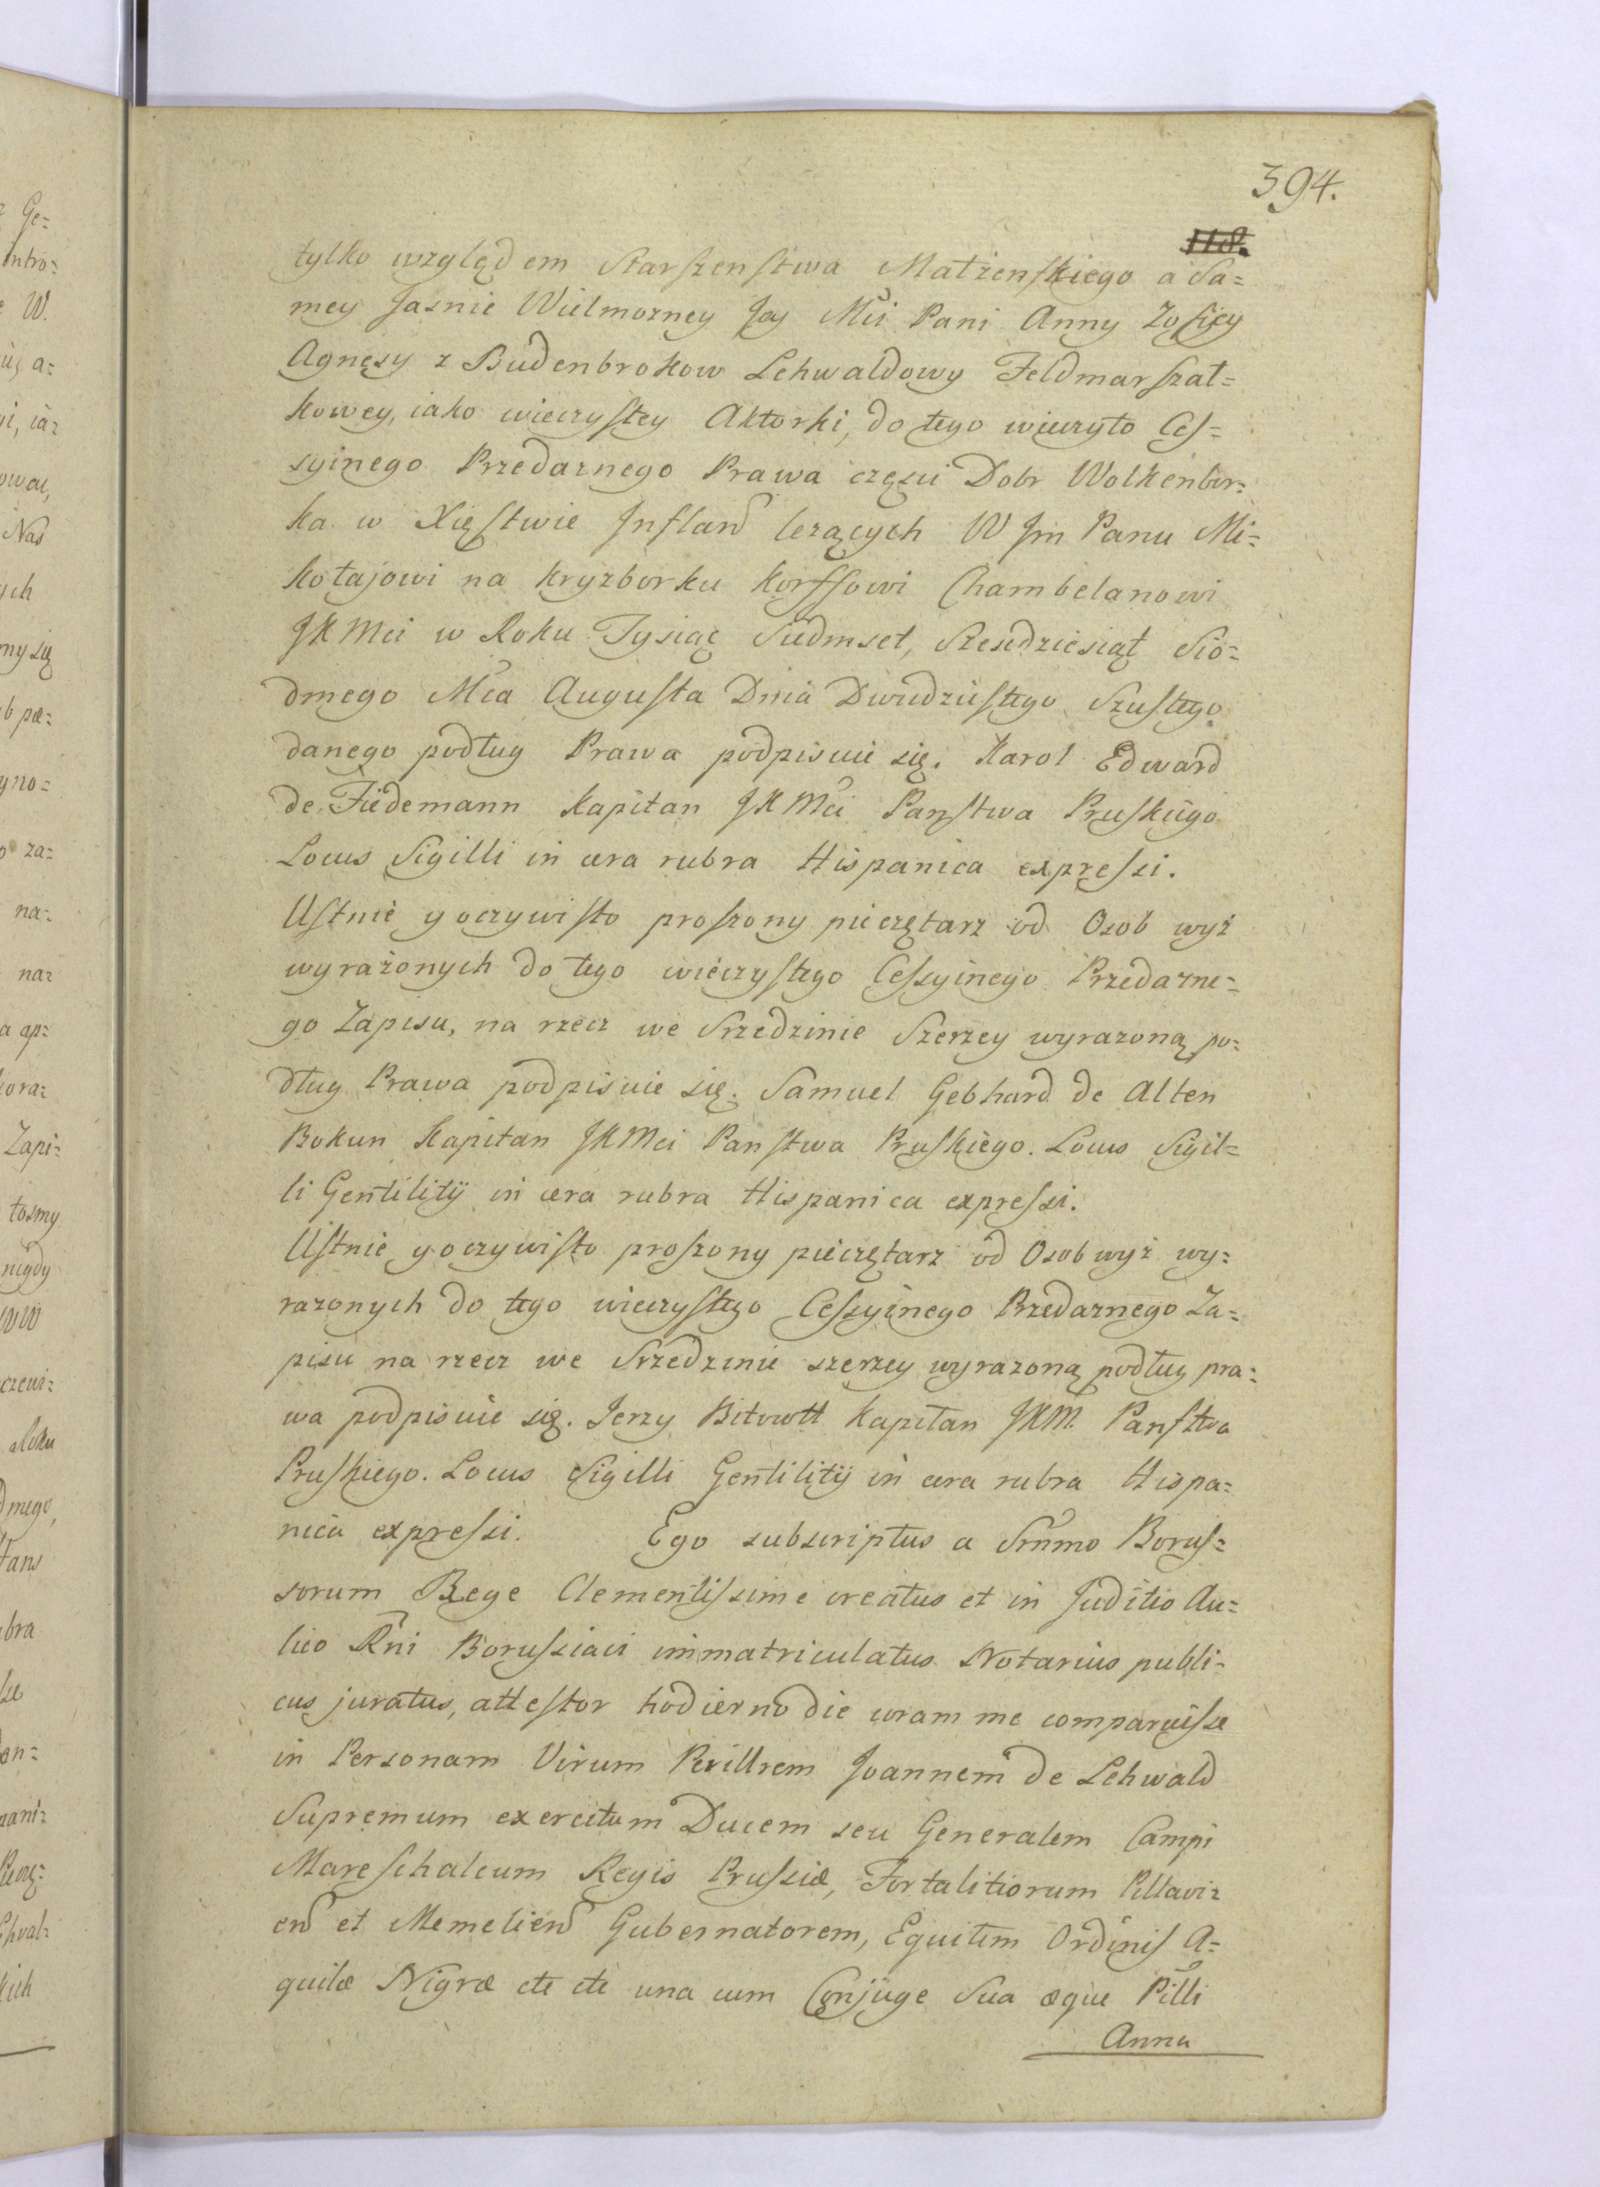 394.
118.
tylko względem Starszenstwa Małżenskiego a Sa=
mey Jasnie Wielmozney Jey Mci Pani Anny Zofiey
Agnesy z Budenbrokow Lehwaldowy Feldmarszał=
kowey, iako wieczystey Aktorki, do tego wieczysto Ces=
syinego Przedaznego Prawa częsci Dobr Wolkenbor=
ka w Xięstwie Infland lezących W Jm Panu Mi=
kołajowi na Kryzborku Korffowi Chambelanowi
JKMci w Roku Tysiąc Siedmset, Szesdziesiąt Sio=
dmego Mca Augusta Dnia Dwudziestego Szustego
danego podług Prawa podpisuie się. Karol Edward
de Fiedemann Kapitan JKMci Panstwa Pruskiego
Locus Sigilli in cera rubra Hispanica expressi.
Ustnie y oczywisto proszony pieczętarz od Osob wyż
wyrażonych do tego wieczystego Cessyinego Przedazne=
go Zapisu, na rzecz we Srzedzinie Szerzey wyrazoną po=
dług Prawa podpisuie się. Samuel Gebhard de Alten
Bokun Kapitan JKMci Panstwa Pruskiego. Locus Sigil=
li Gentilitij in cera rubra Hispanica expressi.
Ustnie y oczywisto proszony pieczętarz od Osob wyż wy=
razonych do tego wieczystego Cessyinego Przedaznego Za=
pisu na rzecz we Srzedzinie szerzey wyrazoną podług pra=
wa podpisuie się. Jerzy Bitowtt Kapitan JKM Panstwa
Pruskiego. Locus Sigilli Gentilitij in cera rubra Hispa=
nica expressi. Ego subscriptus a Srnmo Borus=
sorum Rege Clementissime creatus et in Juditio Au=
lico Rni Borussiaci immatriculatus Notarius publi=
cus juratus, attestor hodierno die coram me comparuisse
in Personam Virum Perillrem Joannem de Lehwald
Supremum exercitum Ducem seu Generalem Campi
Mareschalcum Regis Prussiæ, Fortalitiorum Pillavi=
end et Memeliend Gubernatorem, Equitem Ordinis A=
quilæ Nigræ etc etc una cum Conjuge Sua æque Pilli
Anna